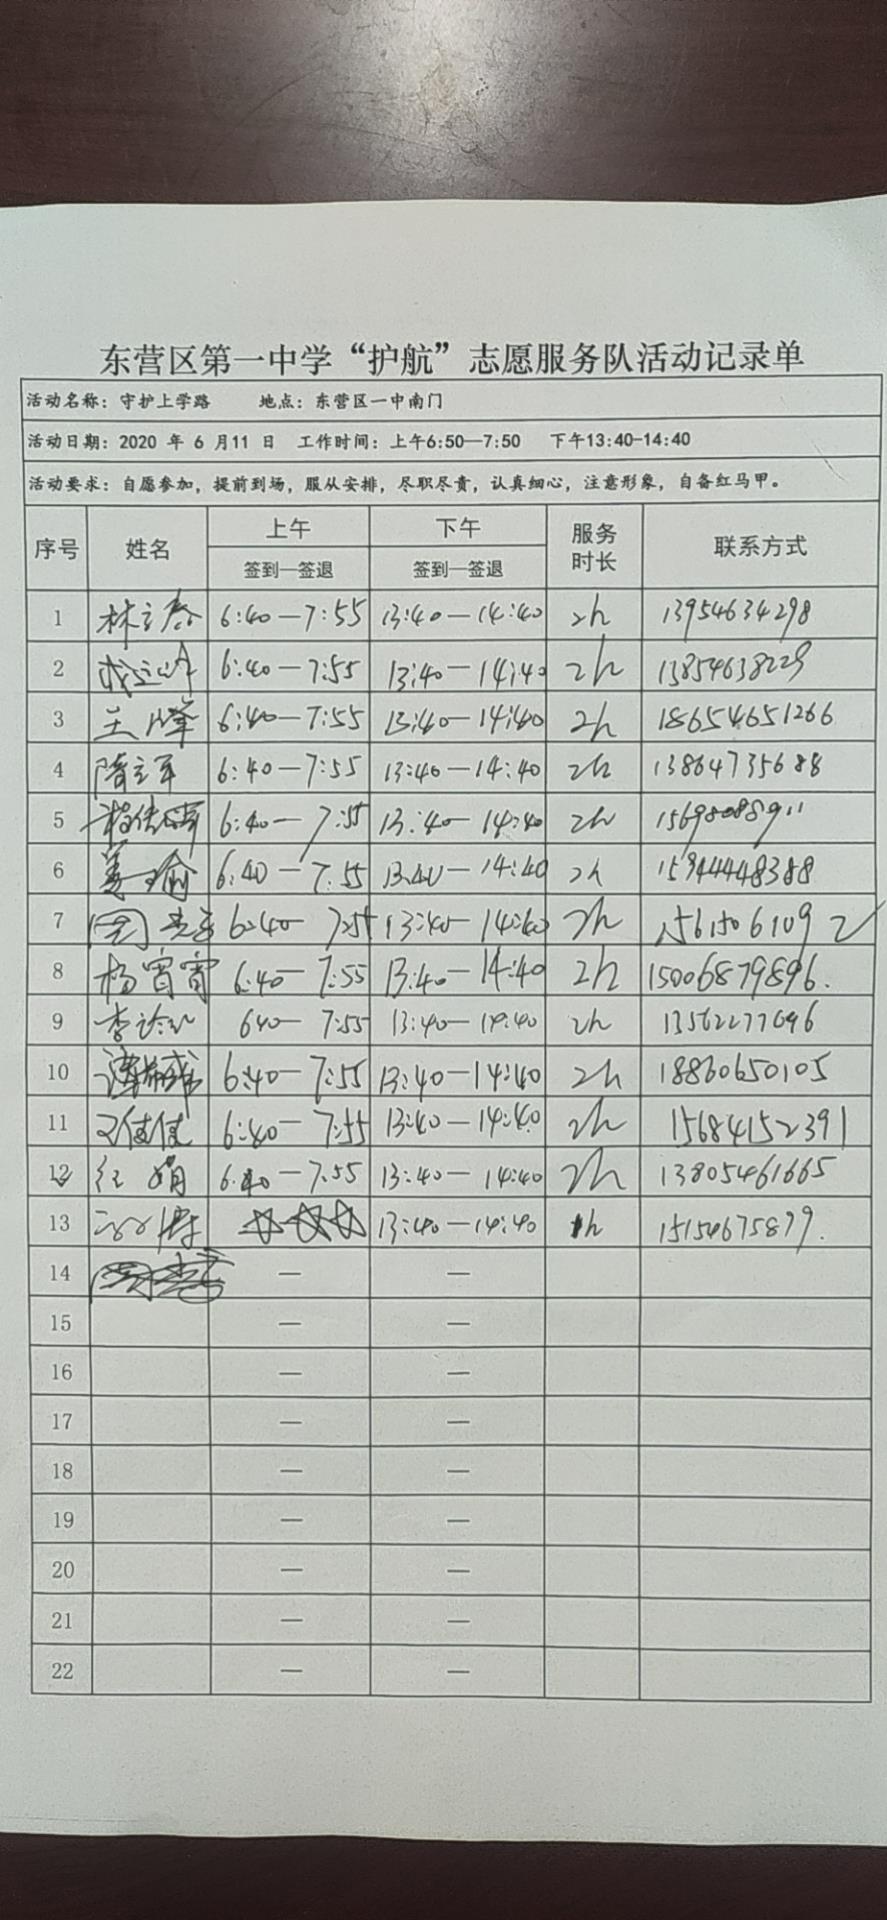 东营区第一中学“护航”志愿服务队活动记录单
活动名称：守护上学路 地点：东营区一中南门
活动日期：2020 年 6 月11 日 工作时间：上午6:50—7:50 下午13:40-14:40
活动要求：自愿参加，提前到场，服从安排，尽职尽责，认真细心，注意形象，自备红马甲。
序号 姓名 上午 下午 服务时长 联系方式
签到—签退 签到—签退
1 6:40—7:55 13:40—14:40 2h 13954634298
2 6:40—7:55 13:40—14:40 2h 13854638229
3 王峰 6:40—7:55 13:40—14:40 2h 18654651266
4 隋立军 6:40—7:55 13:40—14:40 2h 13864735688
5 6:40—7:55 13:40—14:40 2h 15698088911
6 姜瑜 6:40—7:55 13:40—14:40 2h 15944448388
7 6:40—7:55 13:40—14:40 2h
8 杨霄霄 6:40—7:55 13:40—14:40 2h 15006879896.
9 640—7:55 13:40—14:40 2h 13562277696
10 6:40—7:55 13:40—14:40 2h 18860650105
11 王倩倩 6:40—7:55 13:40—14:40 2h 15684152391
12 6:40—7:55 13:40—14:40 2h 13805461665
13 13:40—14:40 1h 15154675879.
14 — —
15 — —
16 — —
17 — —
18 — —
19 — —
20 — —
21 — —
22 — —